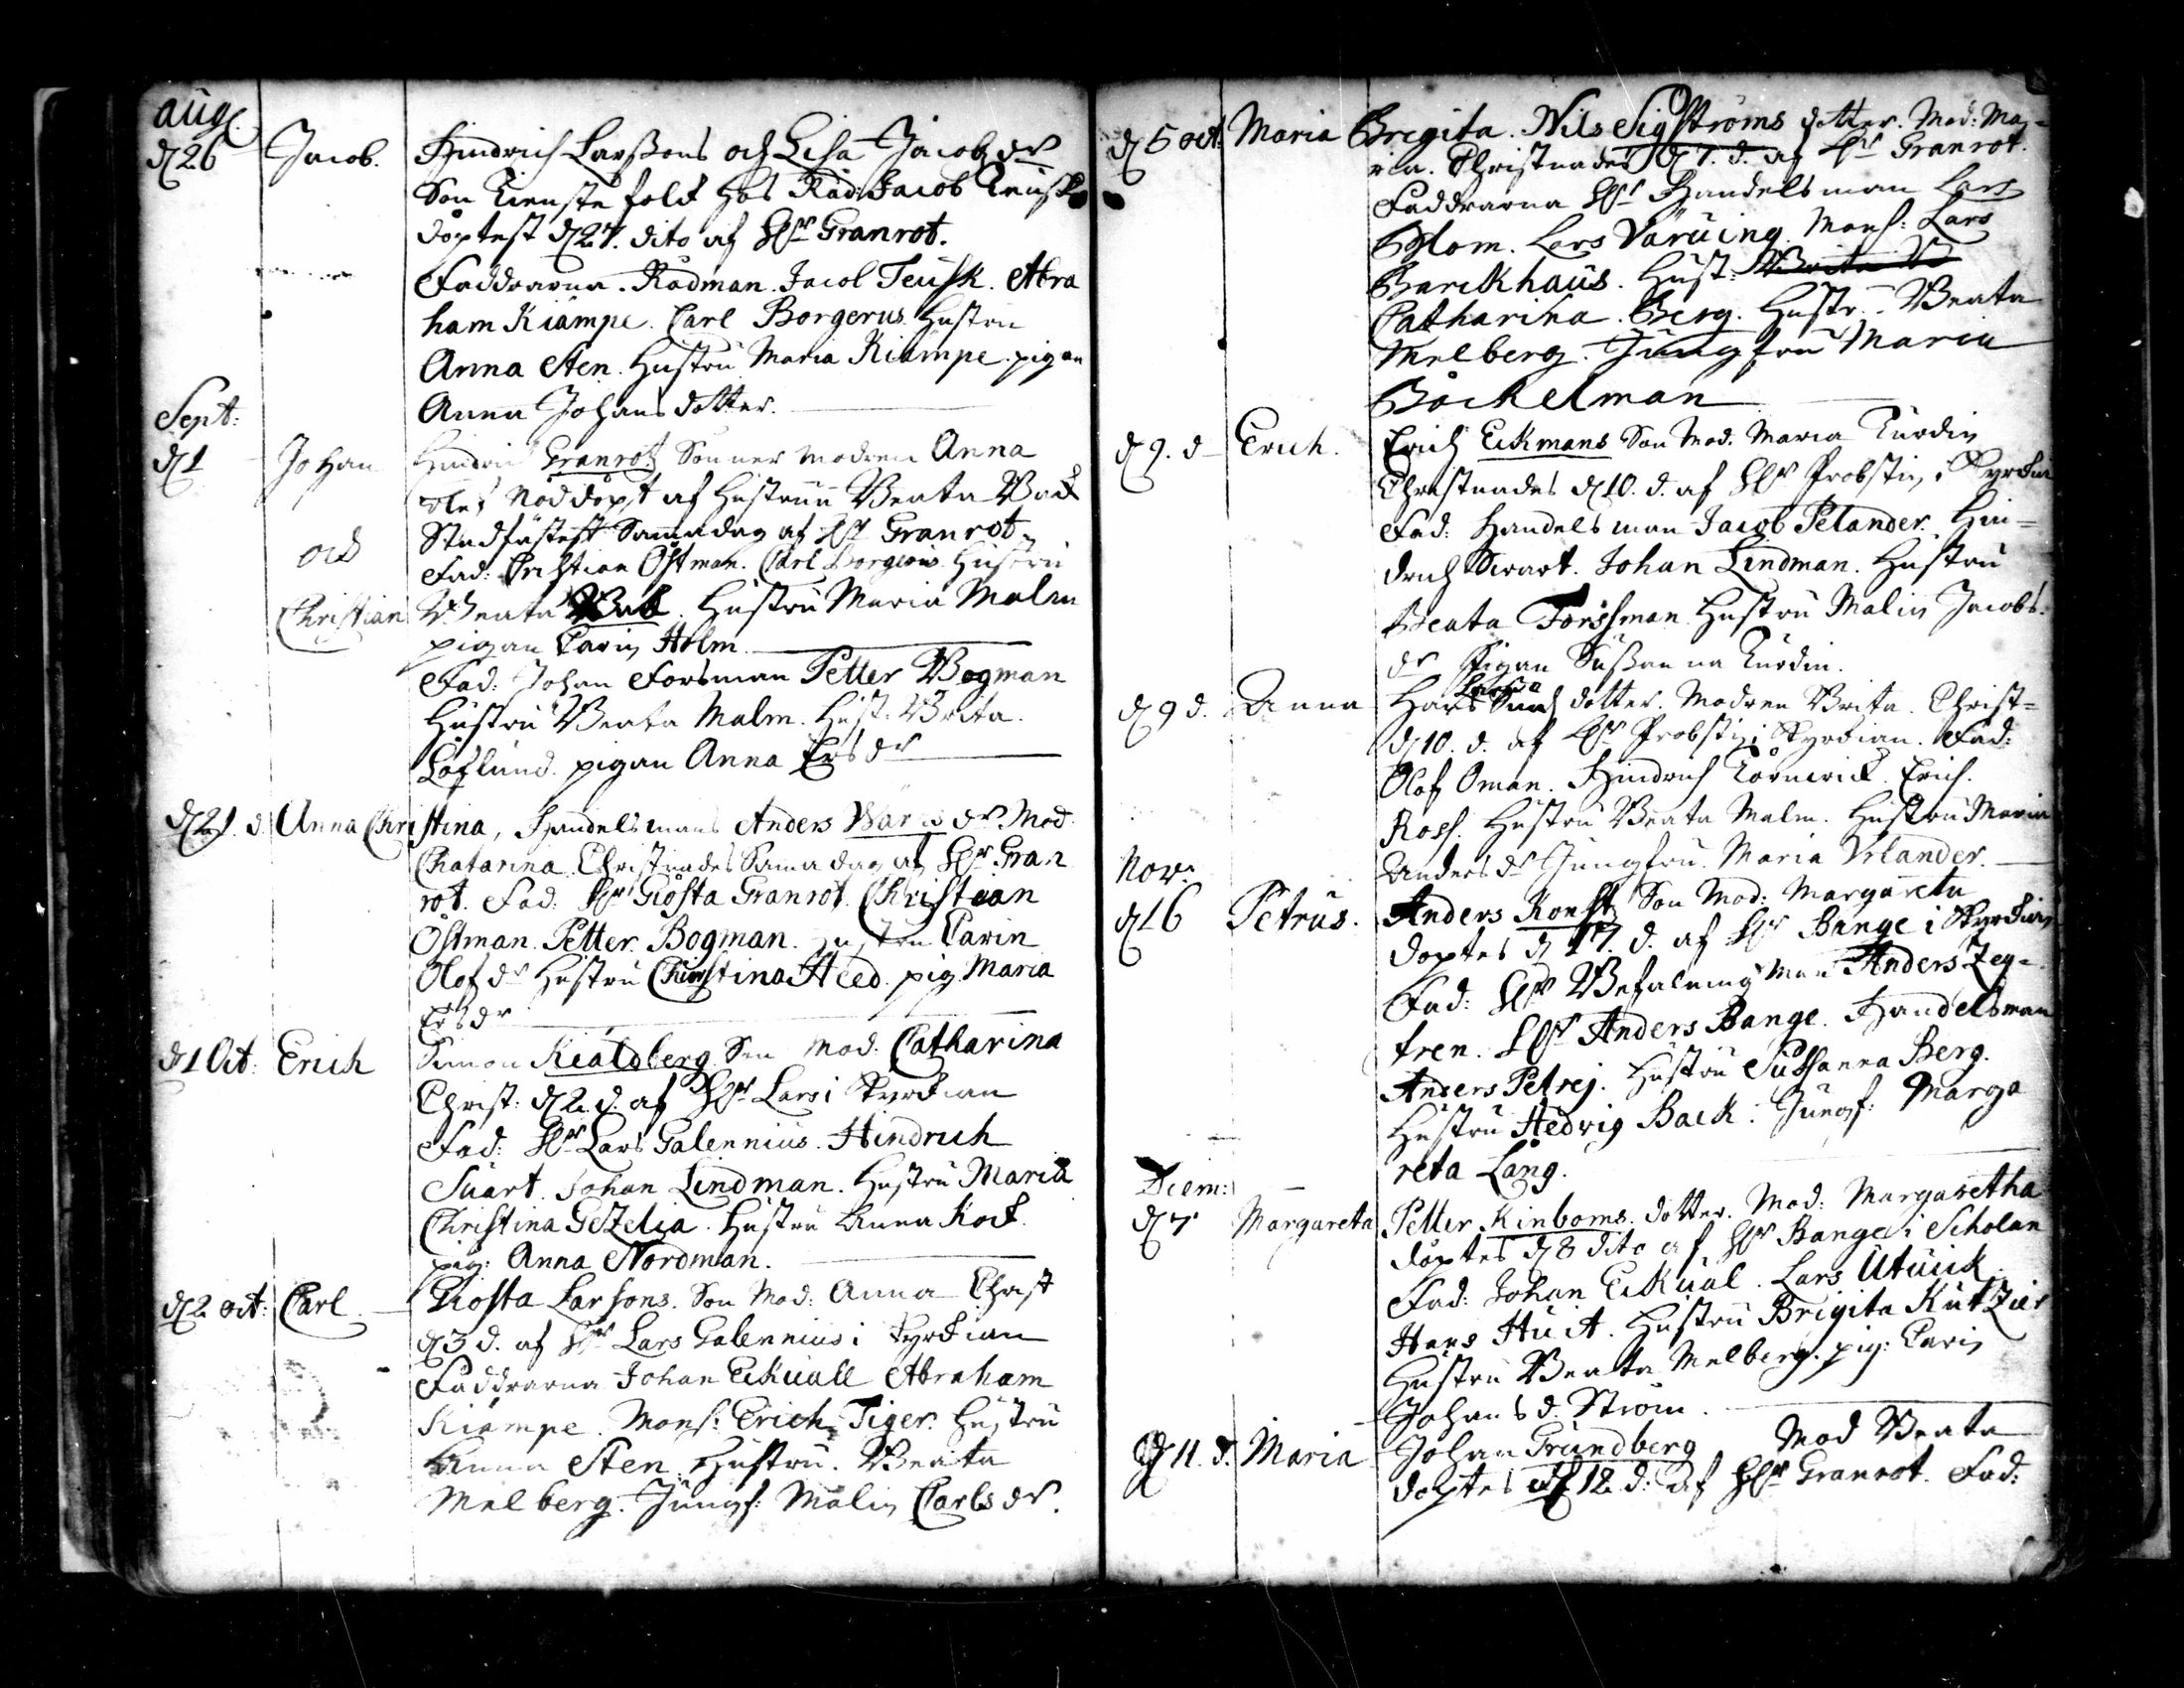 aug.
d 26 Jacob. Hindrich Larssons och Lisa Jacobs dr
Son tienste folk hos Råd: Jacob Teusk
döptest d 27. dito af Hr Granrot.
Faddrarna. Rådman. Jacob Teusk. Abra
ham Kiämpe. Carl Borgerus. Hustru
Anna Sten. Hustru Maria Kiämpe. pigan
Anna Johans dotter.
Sept:
d 1 Johan Hindric Granrot Sönner modren Anna
Nöddöpt af Hustrun Beata
Stadfästest Samadag af Hr Granrot
och
Fad: Christian Östman. Carl Borgerus Hustru
Christian Beata Hustru Maria Malm
pigan Carin Holm
Fad: Johan Forsman Petter Bogman
Hustru Beata Malm. Hust. Brita.
Löflund. pigan Anna Ers dr
d 21. d. Anna Christina, Handelsmans Anders dr Mod
Chatarina. Christnades Sama dag af Hr Gran
rot. Fad: Hr Giösta Granrot. Christian
Östman. Petter. Bogman. Hustru Carin
Olofs dr Hustru Christina Heed. pig. Maria
Ers dr
d 1 Oct: Erich Simon Kialdberg Son Mod. Catharina
Christ: d 2. d. af Hr Lars i Kyrckian
Fad: Hr Lars Galennius. Hindrich
Suart. Johan Lindman. Hustru Maria
Christina Gezelia. Hustru Anna Kock.
pig: Anna Nordman.
d 2 oct: Carl Giösta Larsons. Son Mod: Anna Christ
d 3 d. af Hr Lars Galennius i Kyrckian
Faddrarna Johan Eckuall Abraham
Kiämpe. Mons: Erich Tiger. Hustru
Anna Sten Hustru. Beata
Melberg. Jungf: Malin Carls dr.
d 5 oct: Maria Brigita. Nils Sigströms dotter. Mod: Ma=
ria. Christnades d 7. d. af Hr Granrot.
Faddrarna Hr Handelsman Lars
Blom. Lars Väruing. Mons: Lars
Barckhaus. Hust:
Catharina. Berg. Hustr: Beata
Melberg. Jungfru Maria
Böckelman
d 9. d Erich. Erich Eckmans Son Mod. Maria Turdin
Christnades d 10. d. af Hr Probsten i Kyrckian
Fad: Handelsman Jacob Pelander. Hin=
drich Swart. Johan Lindman. Hustru
Beata Forssman Hustru Malin Jacobs
dr Pigan Sussanna Turdin.
d 9 d. Anna Hans dotter. Modren Brita. Christ=
d 10. d. af Hr Probsten i Kyrckian. Fad:
Olof Öman. Hindrich Erich.
Ross. Hustru Beata Malm. Hustru Maria
Anders dr Jungfru. Maria Vrlander.
Nov:
d 16 Petrus. Anders Konst Son Mod: Margareta
doptes d 17. d. af Hr Bange i Kyrckian
Fad: Hr Befalningsman Anders Zeg=
tren. Hr Anders Bange. Handelsman
Anders Petrej. Hustru Sussanna Berg.
Hustru Hedvig Back. Jungf: Marga
reta Lång.
Decem:
d 7 Margareta Petter Kinboms. dotter. Mod: Margaretha
doptes d 8 dito af Hr Bange i Scholan
Fad: Johan Eckual. Lars Utuick.
Hans Huit. Hustru Brigita Kutzier
Hustru Beata Melberg. pig: Carin
Johans d. Ström.
d 11. d. Maria Johan Grundberg Mod Beata
doptes d 12 d: af Hr Granrot. Fad: